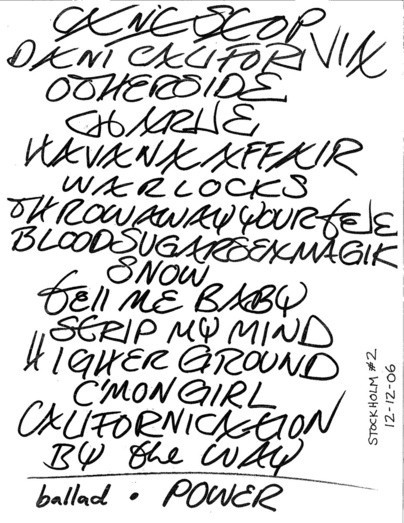 CAN'T STOP
DANI CALIFORNIA
OTHERSIDE
CHARLIE
HAVANA AFFAIR
WARLOCKS
THROW AWAY YOUR TELE
BLOODSUGARSEXMAGIK
SNOW
tell ME BABY
STRIP MY MIND
HIGHER GROUND
C'MON GIRL
CALIFORNICATION
BY the WAY
ballad • POWER
STOCKHOLM #2
12-12-06